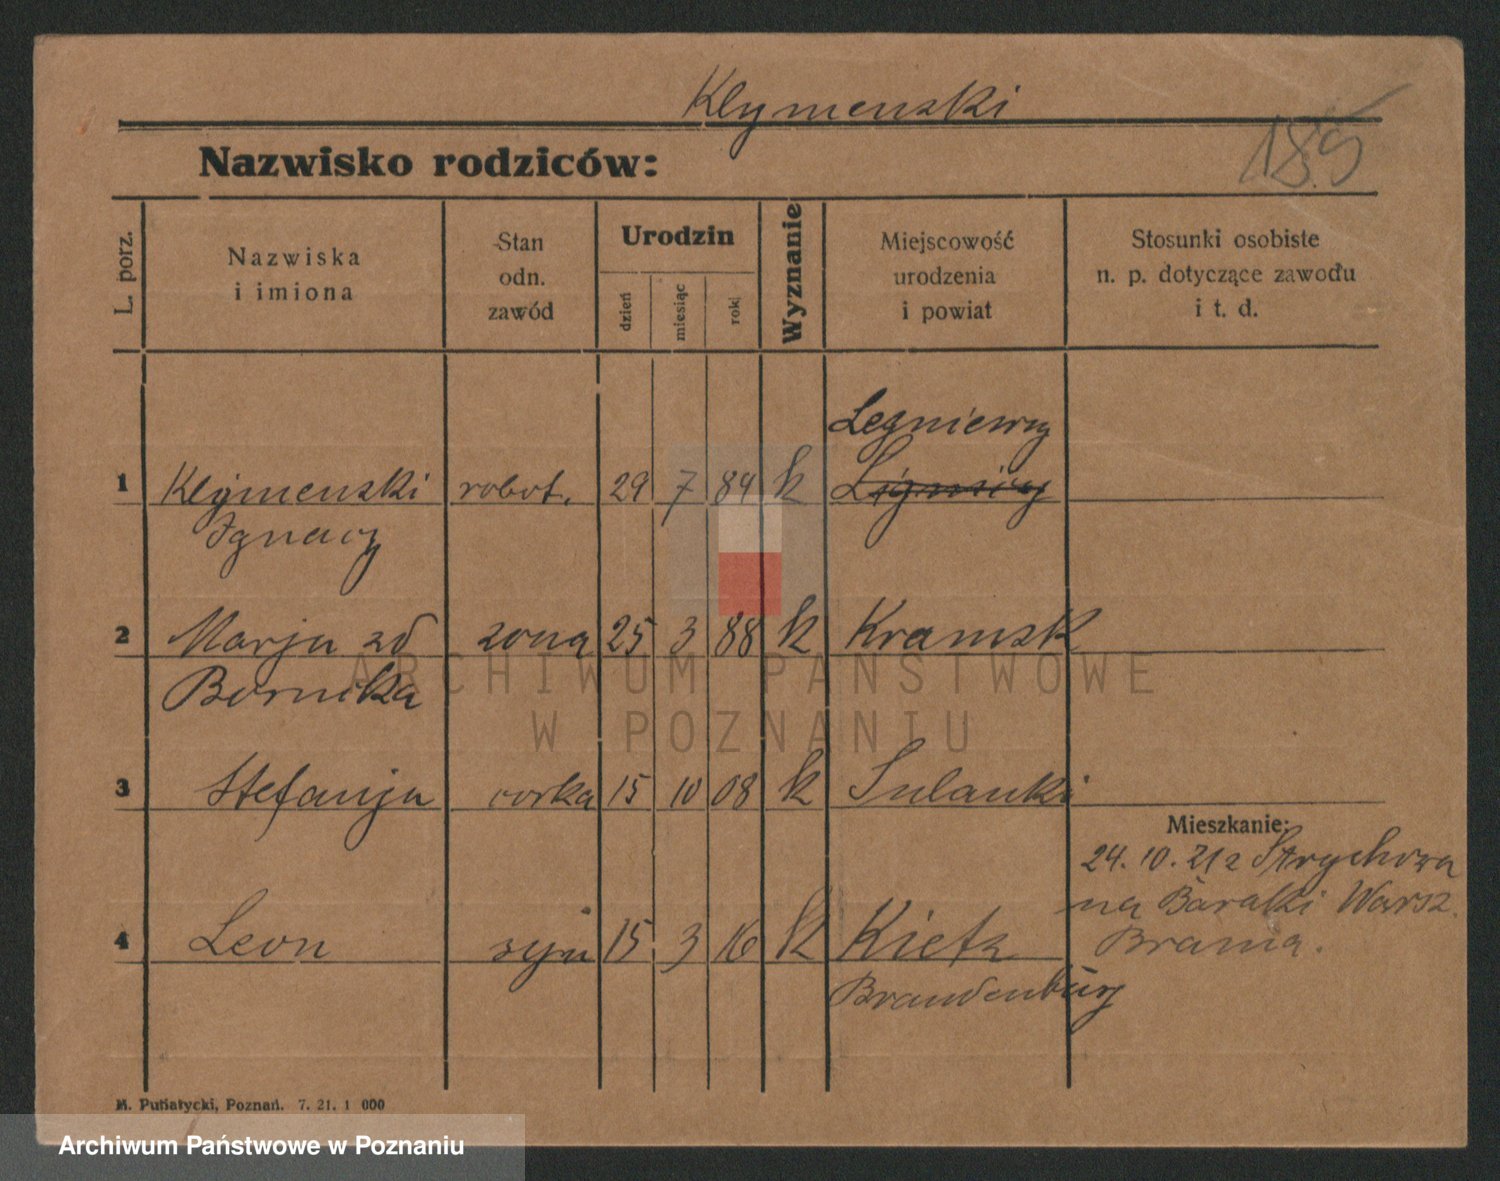 Klymenski
185
Nazwisko rodziców:
L. porz.
Nazwiska
i imiona
Stan
odn.
zawód
Urodzin
dzień
miesiąc
rok
Wyznanie
Miejscowość
urodzenia
i powiat
Stosunki osobiste
n. p. dotyczące zawodu
i t. d.
Legniewy
1 Klymenski robot. 29 7 84 k
Ignacy
2 Marja zd zona 25 3 88 k Kramsk
Bernika
3 Stefanja corka 15 10 08 k Sulanki
Mieszkanie:
24. 10. 21 z Strychowa
na Baraki Warsz.
4 Leon syn 15 3 16 k Kietz
Brama.
Brandenburg
M. Putiatycki, Poznań. 7. 21. 1 000
ARCHIWUM PAŃSTWOWE
W POZNANIU
Archiwum Państwowe w Poznaniu